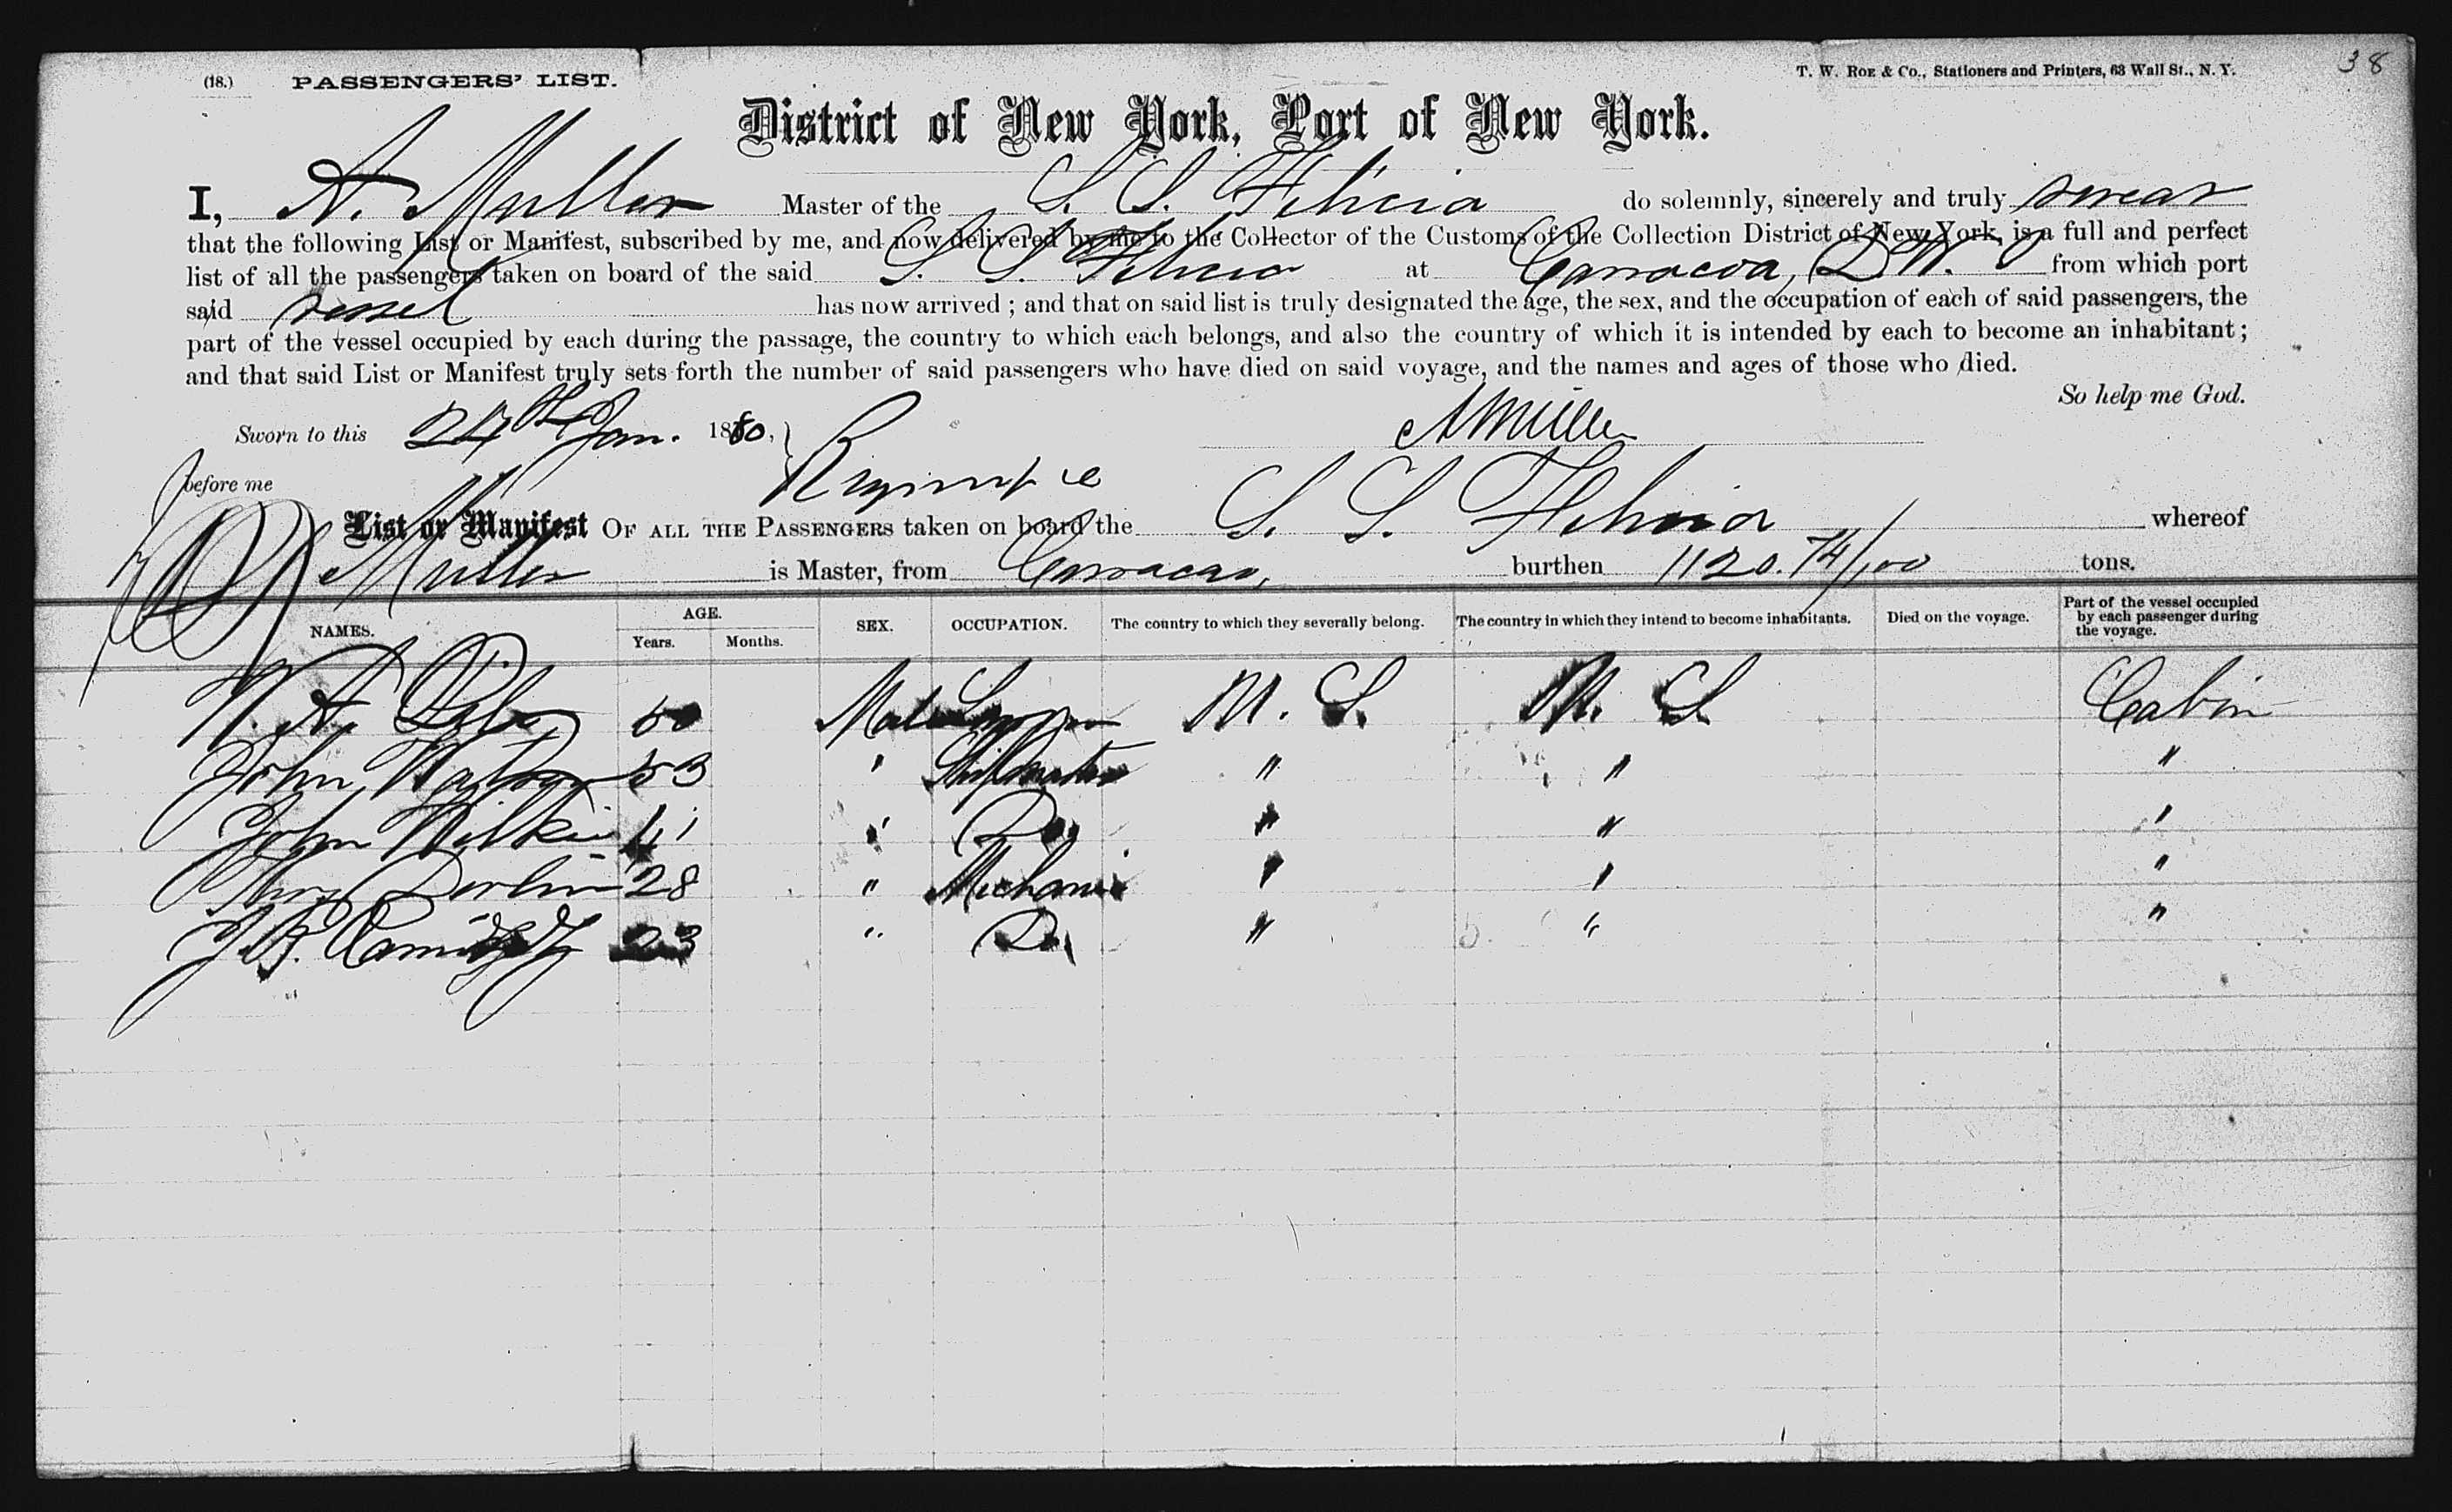 (18.) PASSENGERS' LIST. T. W. ROE & Co., Stationers and Printers, 63 Wall St., N. Y. 38
District of New York, Port of New York.
I, A. Muller Master of the S. S. Felicia do solemnly, sincerely and truly swear
that the following List or Manifest, subscribed by me, and now delivered by me to the Collector of the Customs of the Collection District of New York, is a full and perfect
list of all the passengers taken on board of the said S. S. Felicia at Carracoa, D. W. from which port
said vessel has now arrived ; and that on said list is truly designated the age, the sex, and the occupation of each of said passengers, the
part of the vessel occupied by each during the passage, the country to which each belongs, and also the country of which it is intended by each to become an inhabitant ;
and that said List or Manifest truly sets forth the number of said passengers who have died on said voyage, and the names and ages of those who died.
So help me God.
Sworn to this 24th Jan. 1880, A Muller
before me
List or Manifest OF ALL THE PASSENGERS taken on board the S. S. Felicia whereof
Muller is Master, from Carracao, burthen 1120. 74/100 tons.
NAMES. AGE. Years. Months. SEX. OCCUPATION. The country to which they severally belong. The country in which they intend to become inhabitants. Died on the voyage. Part of the vessel occupied by each passenger during the voyage.
A. 50 Male U. S. U. S. Cabin
John Watson 53 " Shipmaster " " "
John Wilkie 41 " Do. " " "
28 " Mechanic " " "
J. B. 23 " Do. " " "